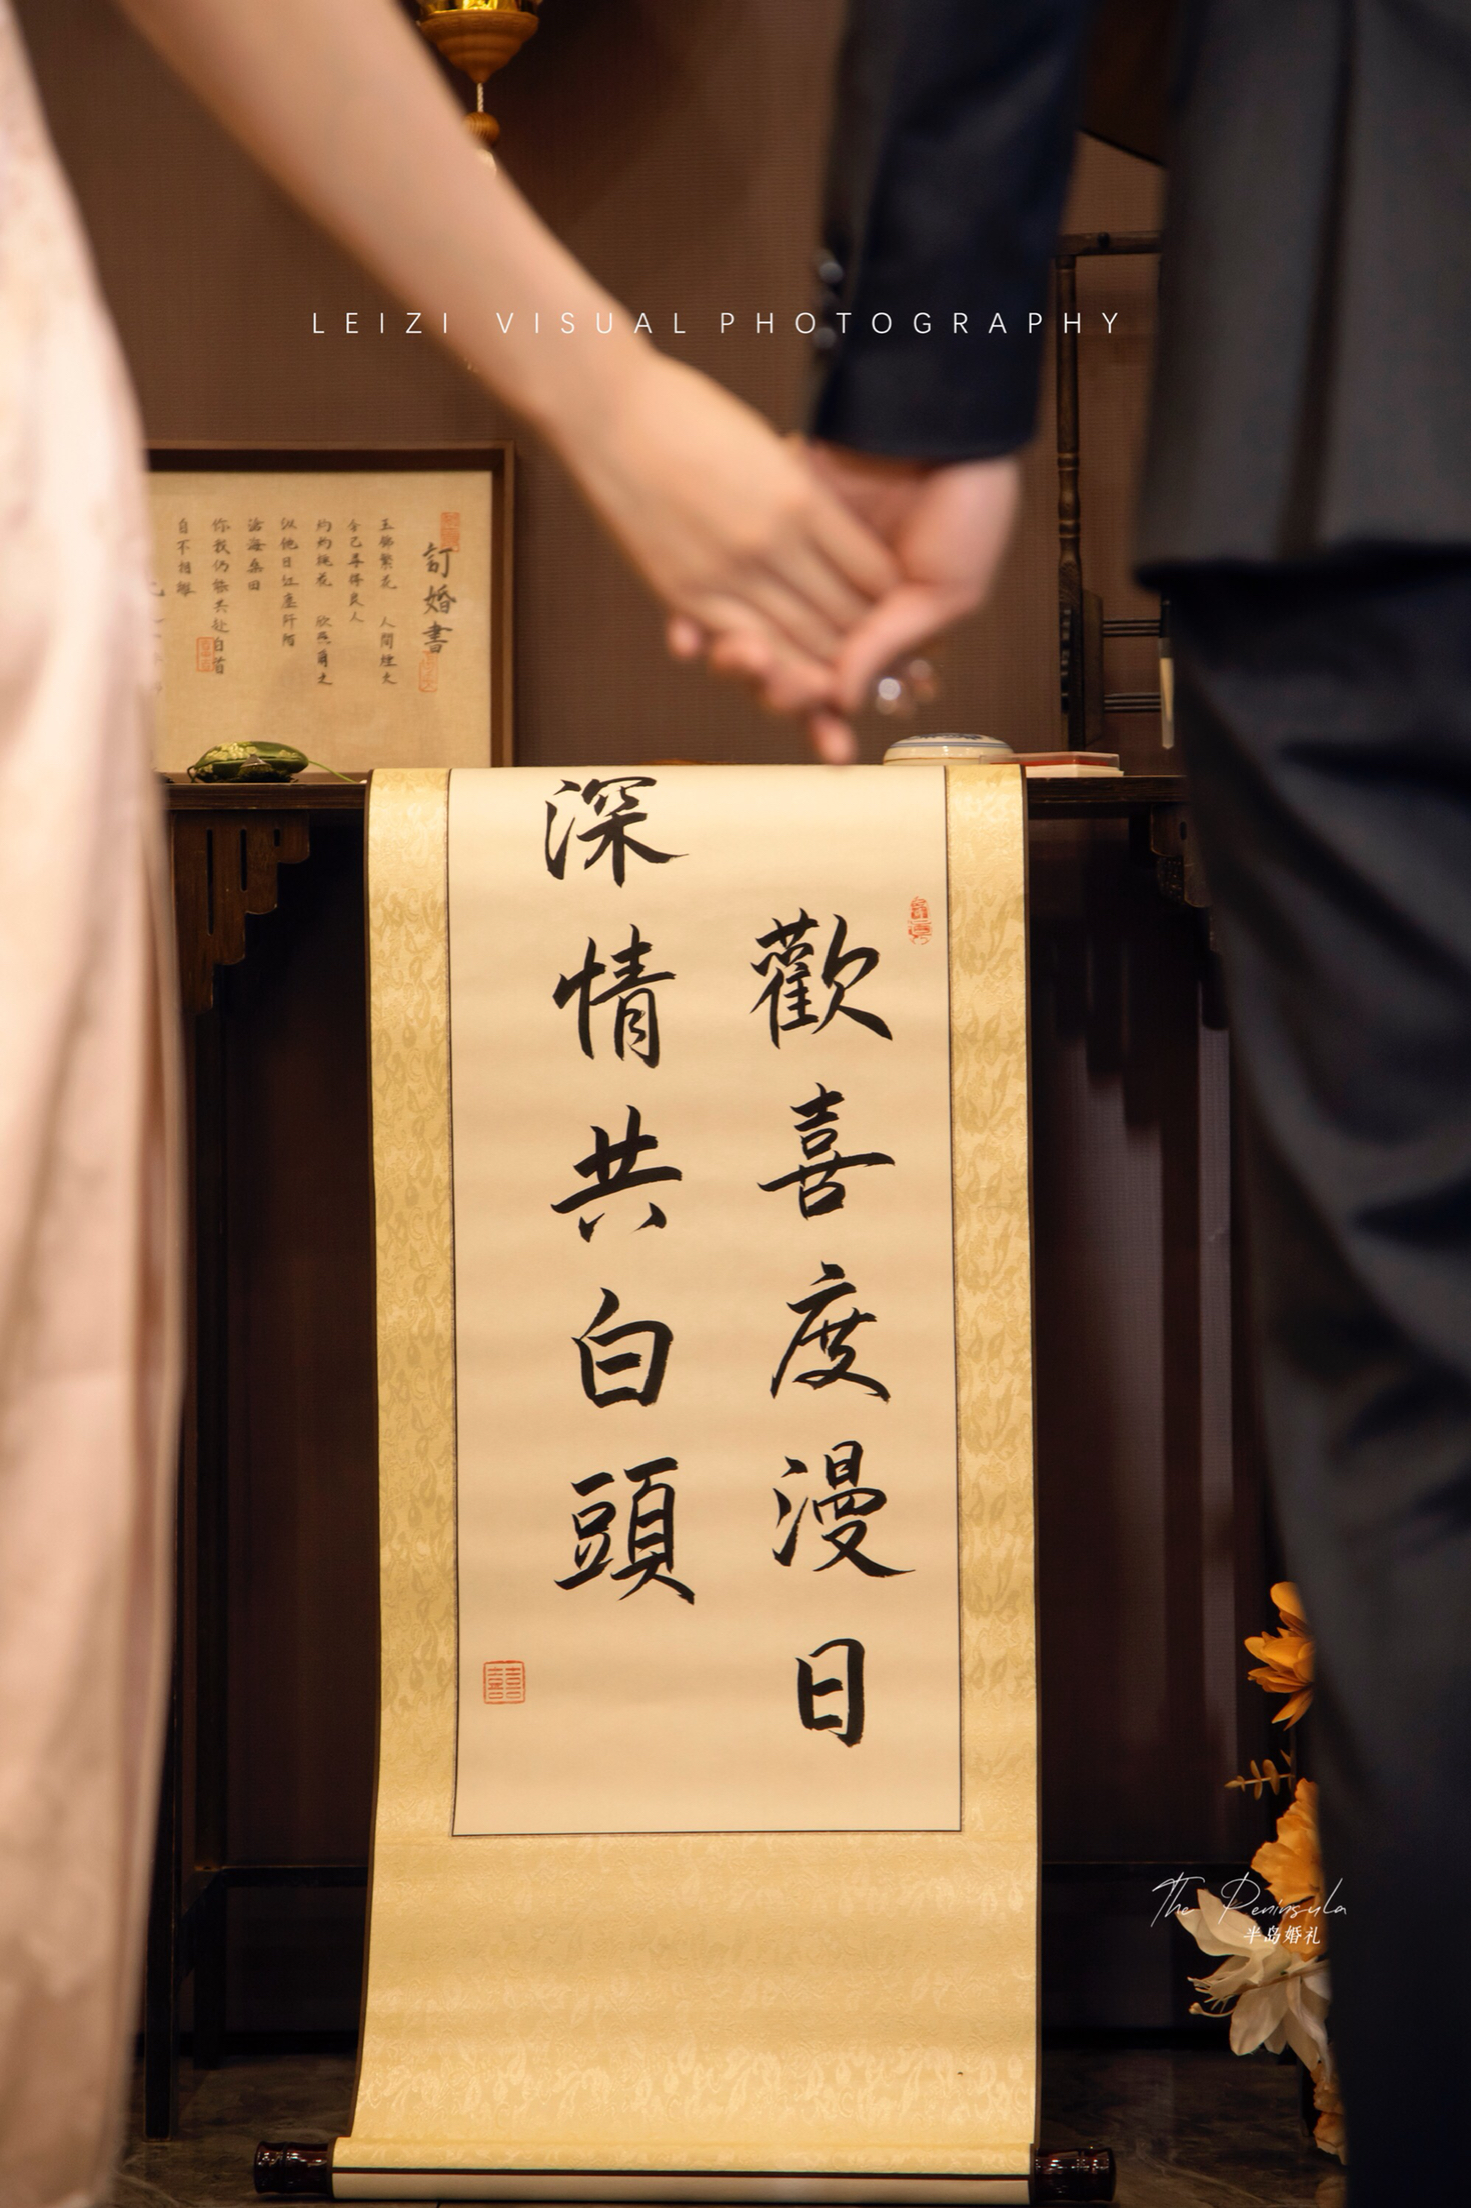 LEIZI VISUAL PHOTOGRAPHY
訂婚書
繁花 人間煙火
今已尋得良人
灼灼桃花 欣燕爾之
似他日紅塵阡陌
滄海桑田
你我仍能共赴白首
自不相離
歡喜度漫日
深情共白頭
囍
The Peninsula
半岛婚礼